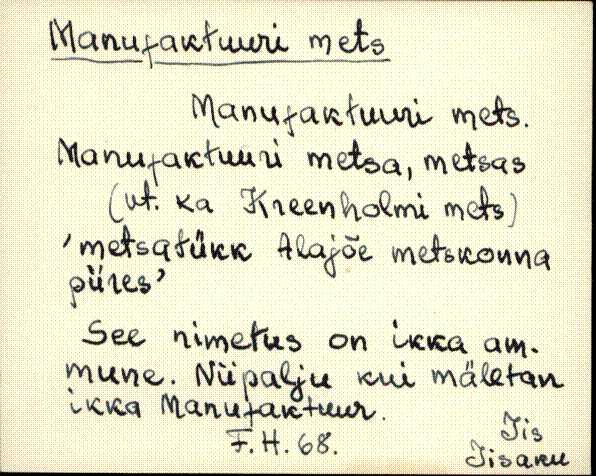 Manufaktuuri mets
Manufaktuuri mets.
Manufaktuuri metsa, metsas
(vt. ka Kreenholmi mets)
'metsatükk Alajõe metskonna
piires'
See nimetus on ikka am-
mune. Niipalju kui mäletan
ikka Manufaktuur.
F.H. 68.
Jis
Jisaku